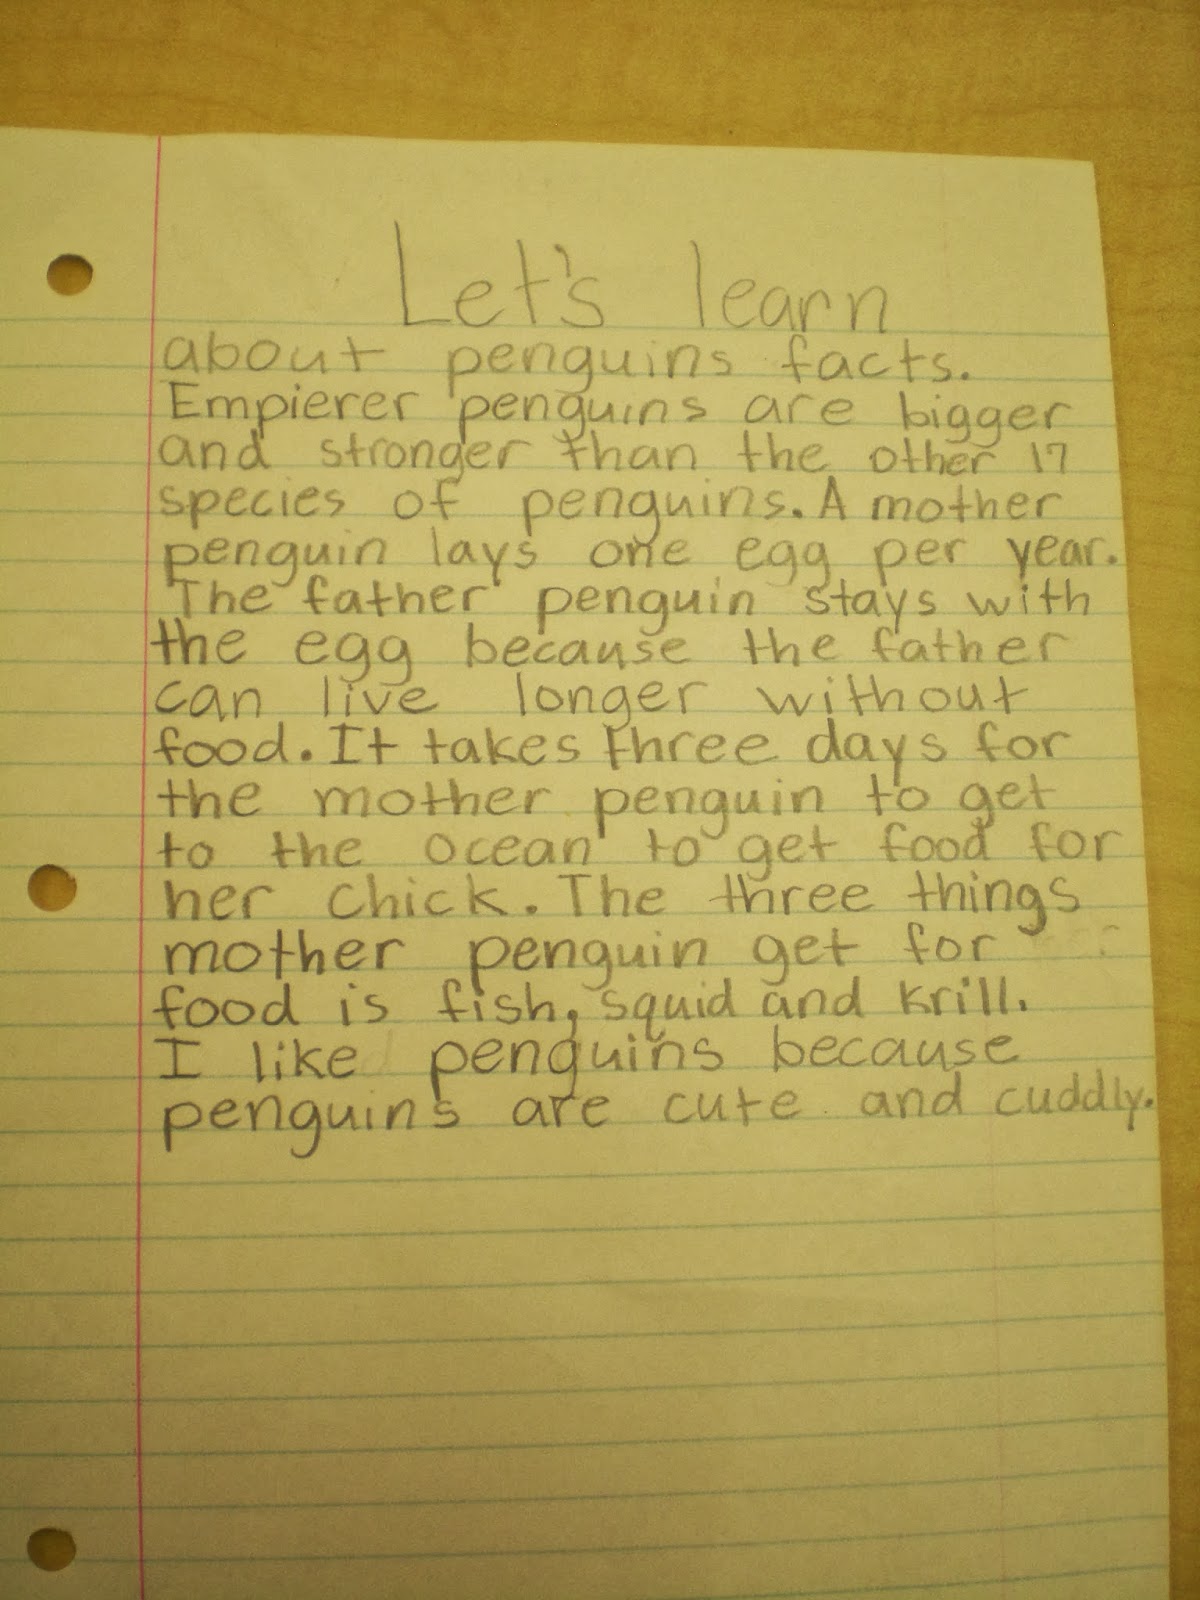 Let's learn
about penguins facts.
Empierer penguins are bigger
and stronger than the other 17
species of penguins. A mother
penguin lays one egg per year.
The father penguin stays with
the egg because the father
can live longer without
food. It takes three days for
the mother penguin to get
to the ocean to get food for
her chick. The three things
mother penguin get for
food is fish, squid and krill.
I like penguins because
penguins are cute and cuddly.